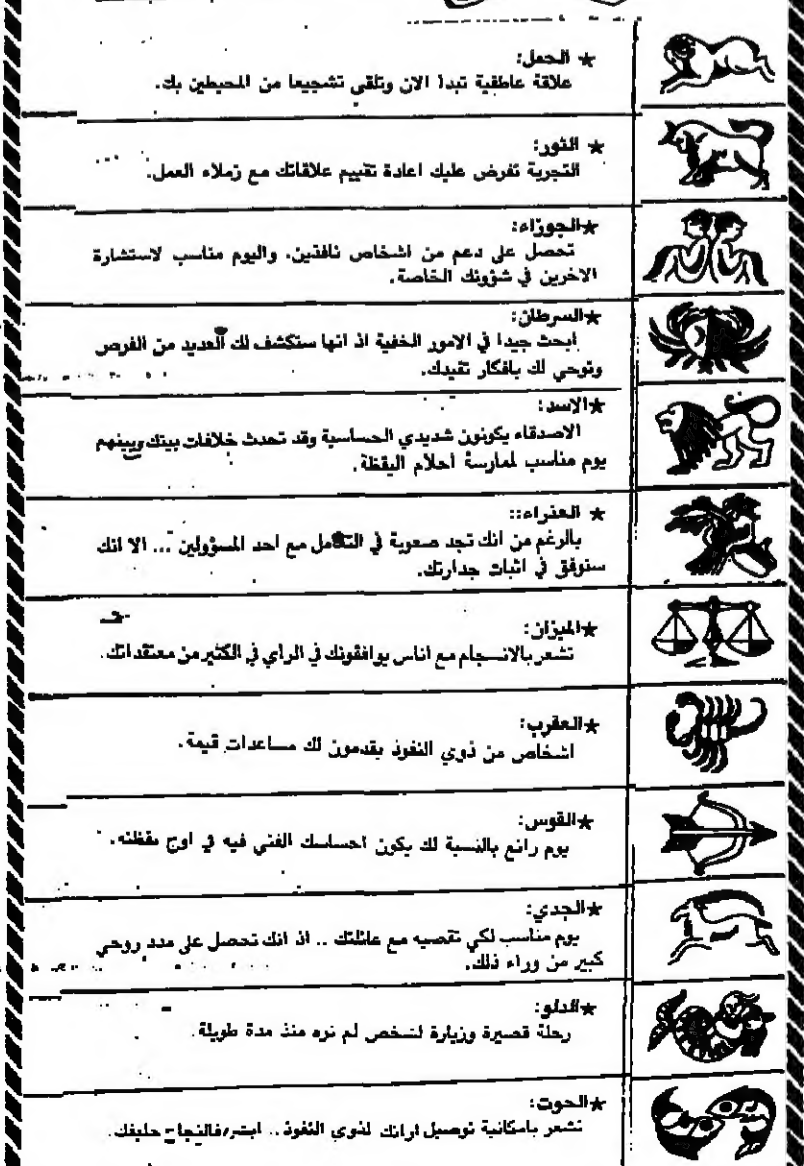 ★ الحمل:
علاقة عاطفية تبدأ الان وتلقى تشجيعا من المحيطين بك.
★ الثور:
التجربة تفرض عليك اعادة تقييم علاقاتك مع زملاء العمل.
★الجوزاء:
تحصل على دعم من اشخاص نافذين. واليوم مناسب لاستشارة
الاخرين في شؤونك الخاصة.
★السرطان:
ابحث جيدا في الامور الخفية اذ انها ستكشف لك العديد من الفرص
وتوحي لك بافكار تفيدك.
★الاسد:
الاصدقاء يكونون شديدي الحساسية وقد تحدث خلافات بينك وبينهم
يوم مناسب لممارسة احلام اليقظة.
★ العذراء::
بالرغم من انك تجد صعوبة في التكامل مع احد المسؤولين ... الا انك
ستوفق في اثبات جدارتك.
★الميزان:
تشعر بالانسجام مع اناس يوافقونك في الرأي في الكثير من معتقداتك.
★العقرب:
اشخاص من ذوي النفوذ يقدمون لك مساعدات قيمة.
★القوس:
يوم رائع بالنسبة لك يكون احساسك الفني فيه في اوج يقظته.
★الجدي:
يوم مناسب لكي تقضيه مع عائلتك .. اذ انك تحصل على مدد روحي
كبير من وراء ذلك.
★الدلو:
رحلة قصيرة وزيارة لشخص لم تره منذ مدة طويلة.
★الحوت:
تشعر بامكانية توصيل ارائك لذوي النفوذ.. ابشر، فالنجاح حليفك.